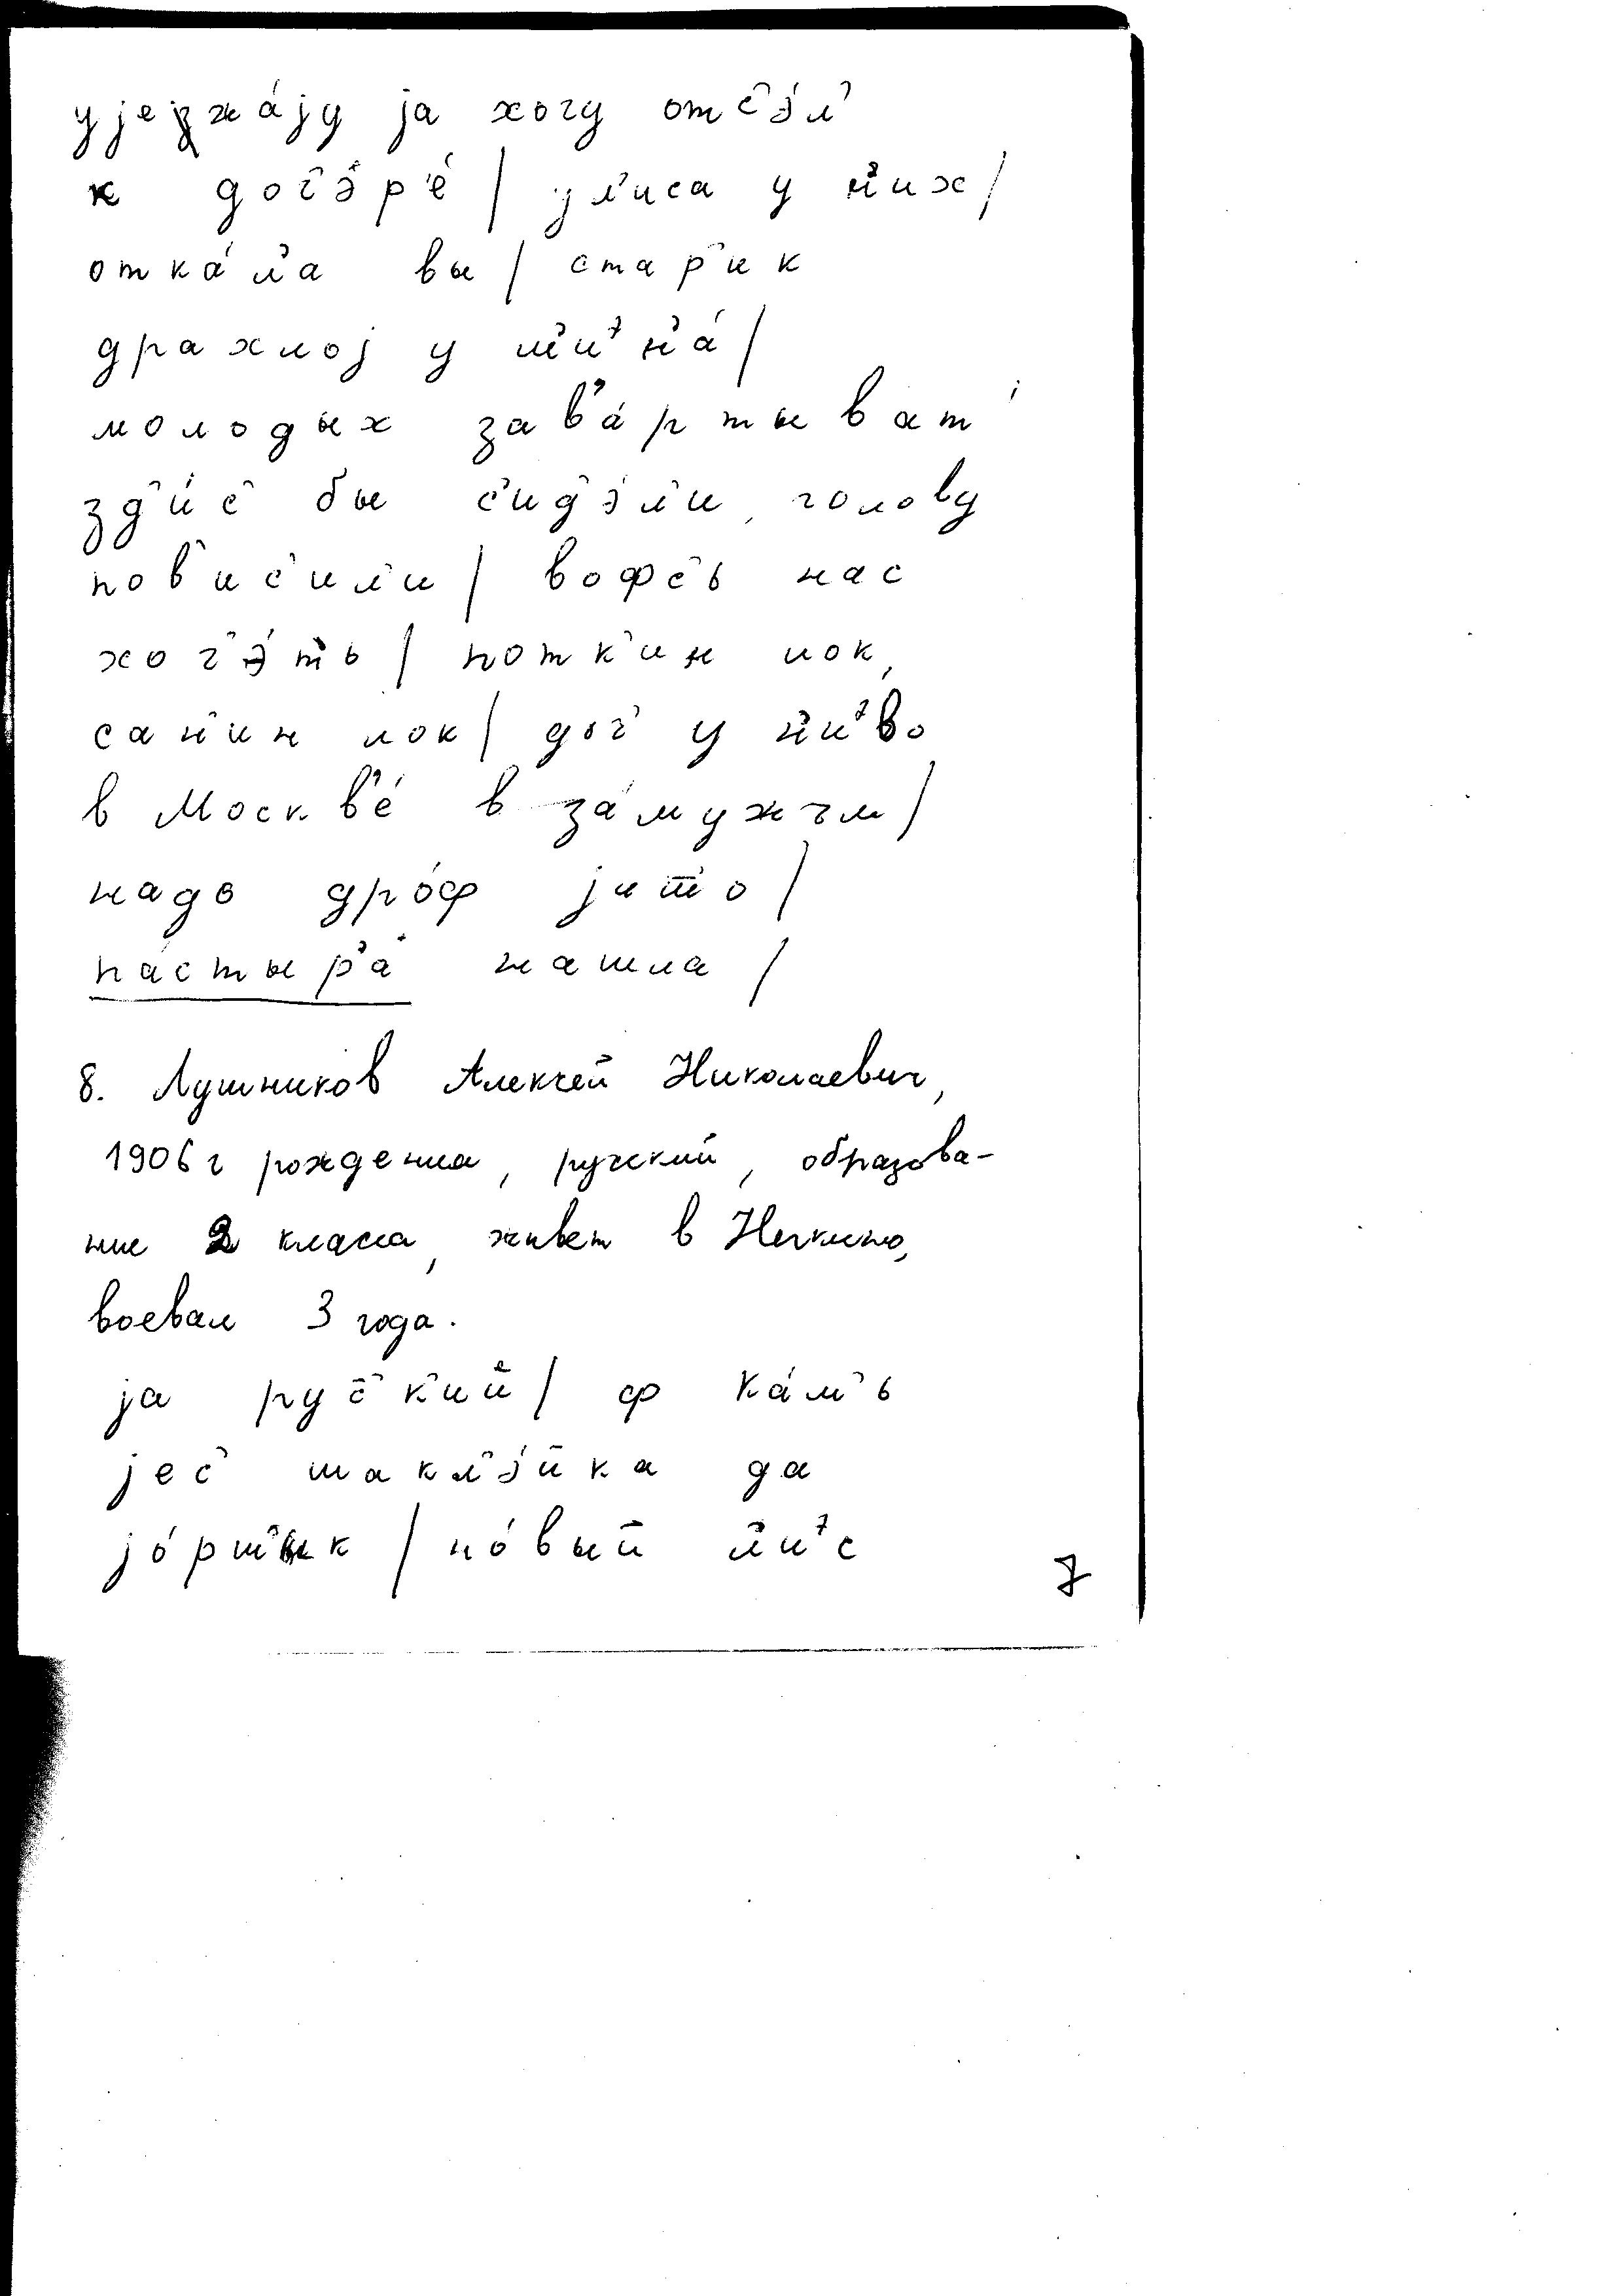 уjежжájу jа хочу отс'э́л'
к доч'эр'é / ул'иса у н'их /
откáл'а вы / стар'ик
драхлоj у м'иэн'á /
молодых зав'áртыват'
зд'и́с' бы с'ид'э́л'и, голову
пов'ис'ил'и / вофс'ъ нас
хоч'э́т'ъ / поткин лок,
сан'ин лок / доч' у н'иэво
в Москв'é в зáмужъм /
надо дрóф jито /
пáстыр'а нашла /
8. Лушников Алексей Николаевич,
1906 г рождения, русский, образова-
ние 2 класса, живет в Нижкино,
воевал 3 года.
jа рус'к'ий / ф кáм'ъ
jес' шакл'э́йка да
jóршык / нóвый л'иэс
7